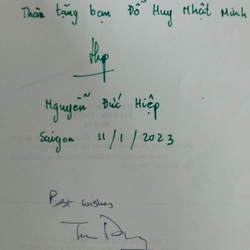 Thân tặng bạn Đỗ Huy Nhật Minh
Nguyễn Đức Hiệp
Saigon 11/1/2023
Best wishes